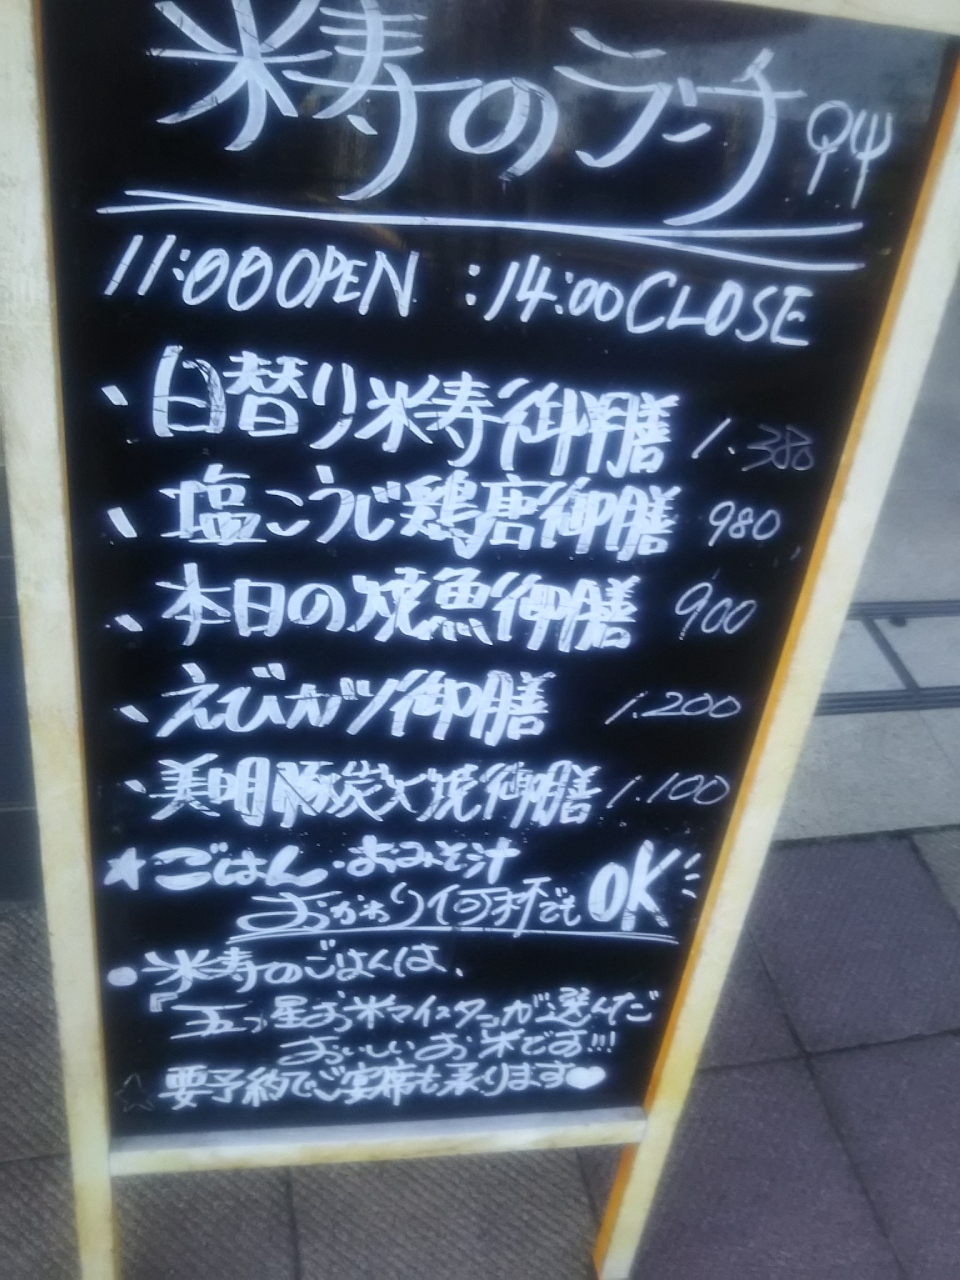 米寿のランチ
11:00 OPEN :14:00 CLOSE
、日替り米寿御膳 1.380
、塩こうじ鶏唐御膳 980
、本日の焼魚御膳 900
、えびカツ御膳 1.200
、美明豚炭火焼御膳 1.100
★ごはん・おみそ汁
おかわり何杯でもOK
●米寿のごはんは、
『五つ星お米マイスター』が選んだ
おいしいお米です!!!
☆要予約でご宴席も承ります♥